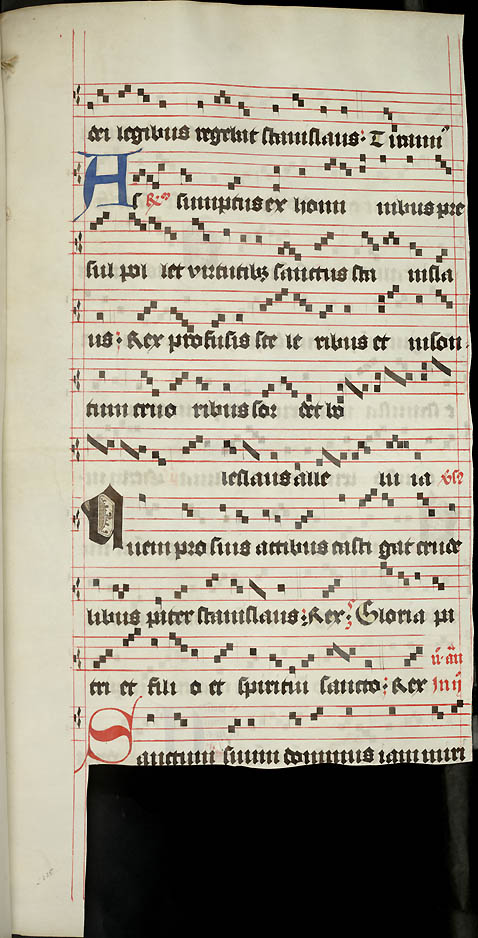 dei legibus regebat stanislaus. Tirani
As &ᵐ sumptus ex homi nibus pre
sul pol let virtutibꝫ sanctus sta nisla
us: Rex profusis sce le ribus et inson
tum cruo ribus sor det bo
leslaus alle lu ia vs̄
Quem pro suis actibus casti gat crude
libus pater stanislaus: Rex: Gloria pa
tri et fili o et spiritui sancto: Rex In ij
Sanctum suum dominus iam miri